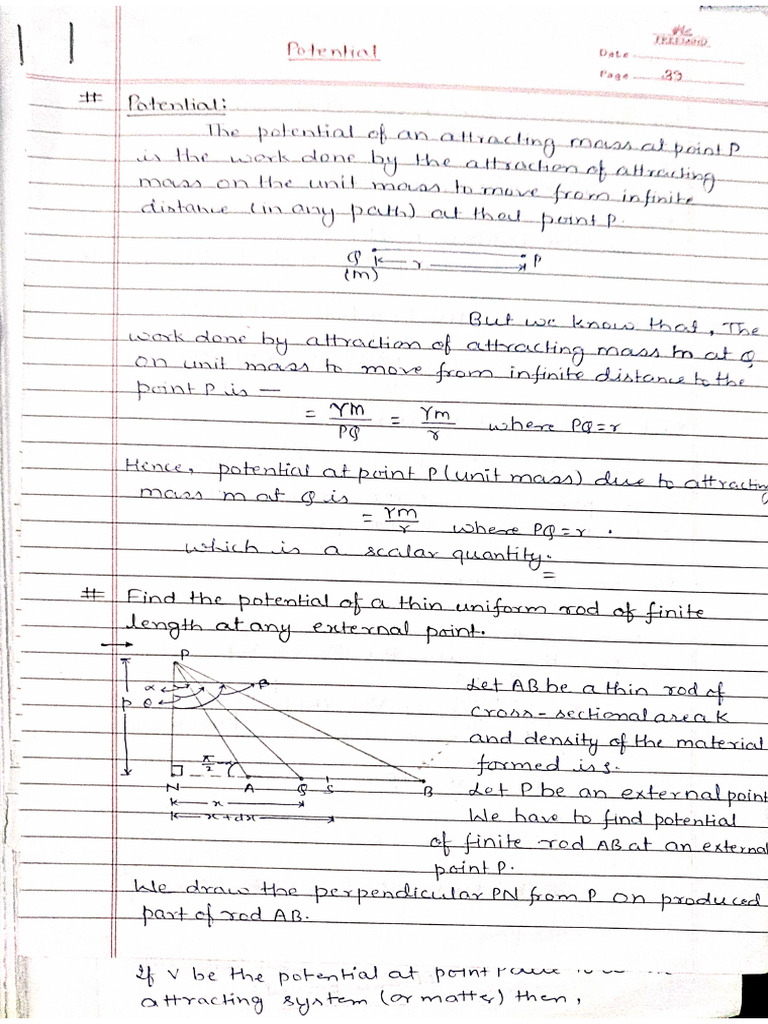 Potential
Date
Page 39
# Potential:
The potential of an attracting mass at point P
is the work done by the attraction of attracting
mass on the unit mass to move from infinite
distance (in any path) at that point P.
Q r P
(m)
But we know that, The
work done by attraction of attracting mass m at Q
on unit mass to move from infinite distance to the
point P is —
= γm/PQ = γm/r where PQ=r
Hence, potential at point P (unit mass) due to attracting
mass m at Q is
= γm/r where PQ=r .
which is a scalar quantity.
# Find the potential of a thin uniform rod of finite
length at any external point.
P
α β
p θ
π/2
N A Q S B
x
x+dx
Let AB be a thin rod of
cross-sectional area K
and density of the material
formed is s.
Let P be an external point
We have to find potential
of finite rod AB at an external
point P.
We draw the perpendicular PN from P on produced
part of rod AB.
If V be the potential at point
attracting system (or matter) then,